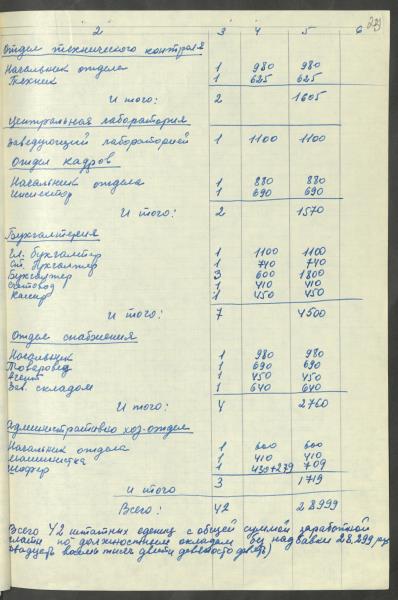 2 3 4 5 6
Отдел технического контроля
Начальник отдела 1 980 980
Техник 1 625 625
Итого: 2 1605
Центральная лаборатория
Заведующий лабораторией 1 1100 1100
Отдел кадров
Начальник отдела 1 880 880
Инспектор 1 690 690
Итого: 2 1570
Бухгалтерия
Гл. бухгалтер 1 1100 1100
Ст. бухгалтер 1 740 740
Бухгалтер 3 600 1800
Счетовод 1 410 410
Кассир 1 450 450
Итого: 7 4500
Отдел снабжения
Начальник 1 980 980
Товаровед 1 690 690
Агент 1 450 450
Зав. складом 1 640 640
Итого: 4 2760
Административно хоз-отдел
Начальник отдела 1 600 600
Машинистка 1 410 410
Шофер 1 430+279 709
итого 3 1719
Всего: 42 28999
Всего 42 штатных единиц с общей суммой заработной
платы по должностным окладам без надбавки 28.299 рув
(двадцать восемь тысяч двести девяносто девять)